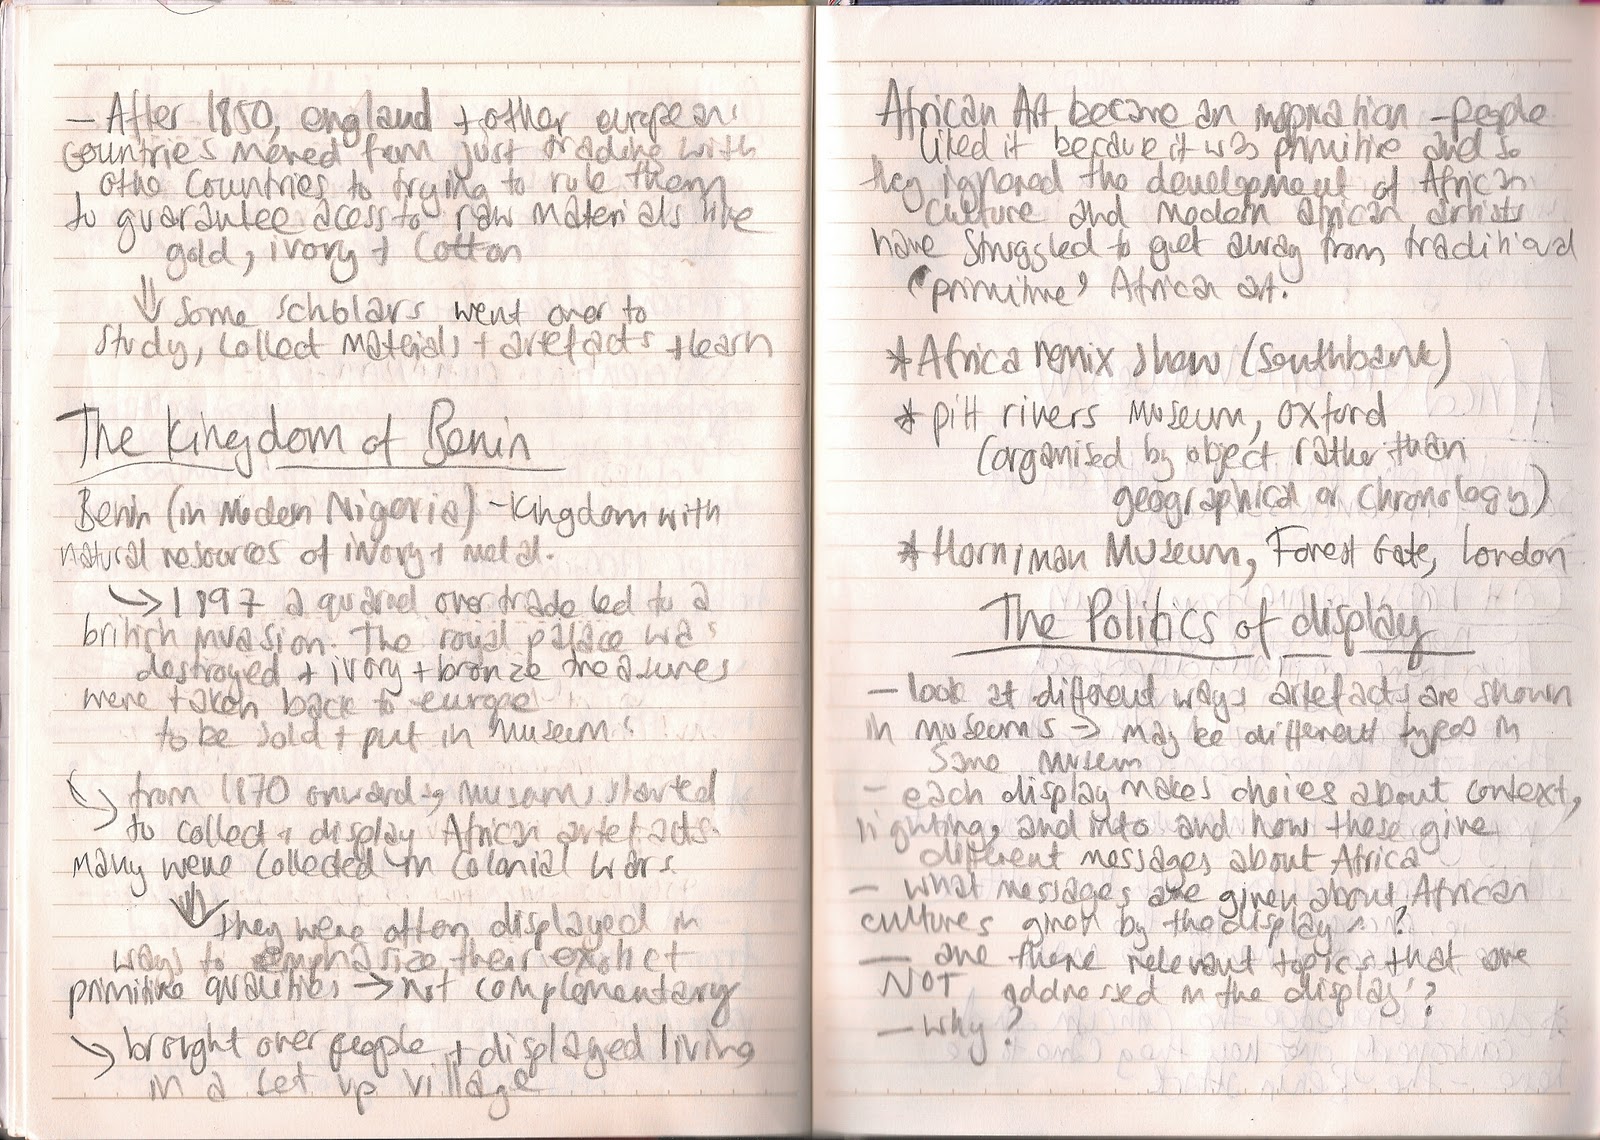 - After 1850, england + other european
countries moved from just trading with
othe countries to trying to rule them
to guarantee acess to raw materials like
gold, ivory + cotton
⇓ some scholars went over to
study, collect materials + artefacts + learn
The Kingdom of Benin
Benin (in modern Nigeria) - Kingdom with
natural resources of ivory + metal.
↳ 1897 a quarrel over trade led to a
british invasion. The royal palace was
destroyed + ivory + bronze treasures
were taken back to europe
to be sold + put in museums
↳ from 1870 onwards, museums started
to collect + display African artefacts.
many were collected in colonial wars.
⇓ they were often displayed in
ways to emphasize their exotic +
primitive qualities → not complementary
↳ brought over people + displayed living
in a set up village
African Art became an inspiration - people
liked it because it was primitive and so
they ignored the development of African
culture and modern african artists
have struggled to get away from traditional
'primitive' African art.
* Africa remix show (Southbank)
* pitt rivers museum, oxford
(organised by object rather than
geographical or chronology)
* Horniman Museum, Forest Gate, London
The Politics of display
- look at different ways artefacts are shown
in museums → may be different types in
same museum
- each display makes choices about context,
lighting, and into and how these give
different messages about Africa
- what messages are given about African
cultures given by the displays?
- are there relevant topics that are
NOT addressed in the display?
- why?